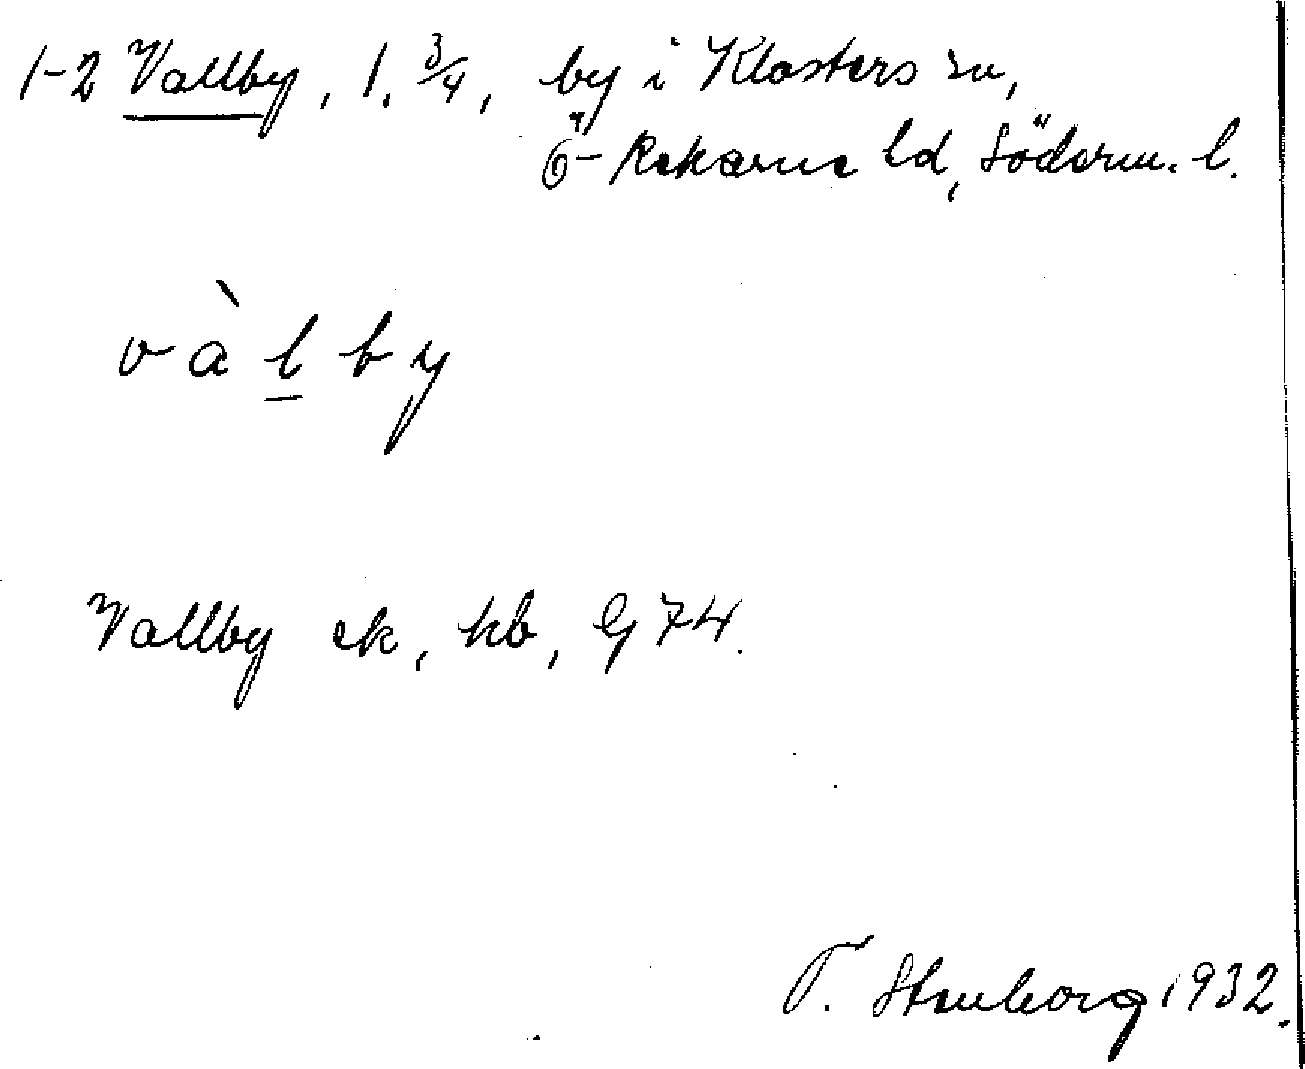 1-2 Vallby, 1, 3/4, by i Klosters sn,
Ö-Rekarne hd, Söderm. l.
vàl̲by
Vallby ek, kb, G 74.
T. Stenborg 1932.